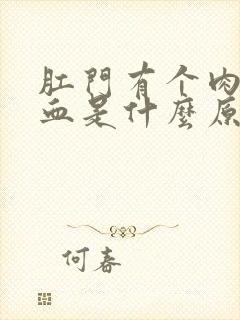 肛門有个肉
血是什麼原
何春